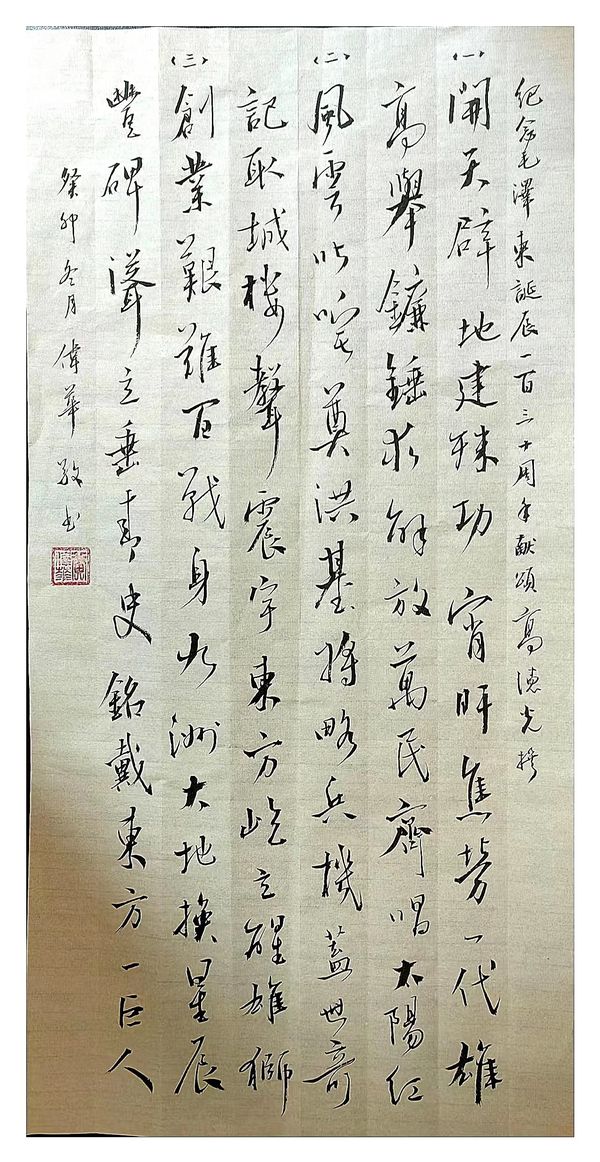 紀念毛澤東誕辰一百三十周年獻頌 高德光撰
(一)
開天辟地建殊功宵旰焦勞一代雄
高舉鐮錘求解放萬民齊唱太陽紅
(二)
風雲叱咤奠洪基將略兵機蓋世奇
記取城樓聲震宇東方屹立醒雄獅
(三)
創業艱難百戰身九洲大地換星辰
豐碑聳立垂青史銘戴東方一巨人
癸卯冬月偉華敬書